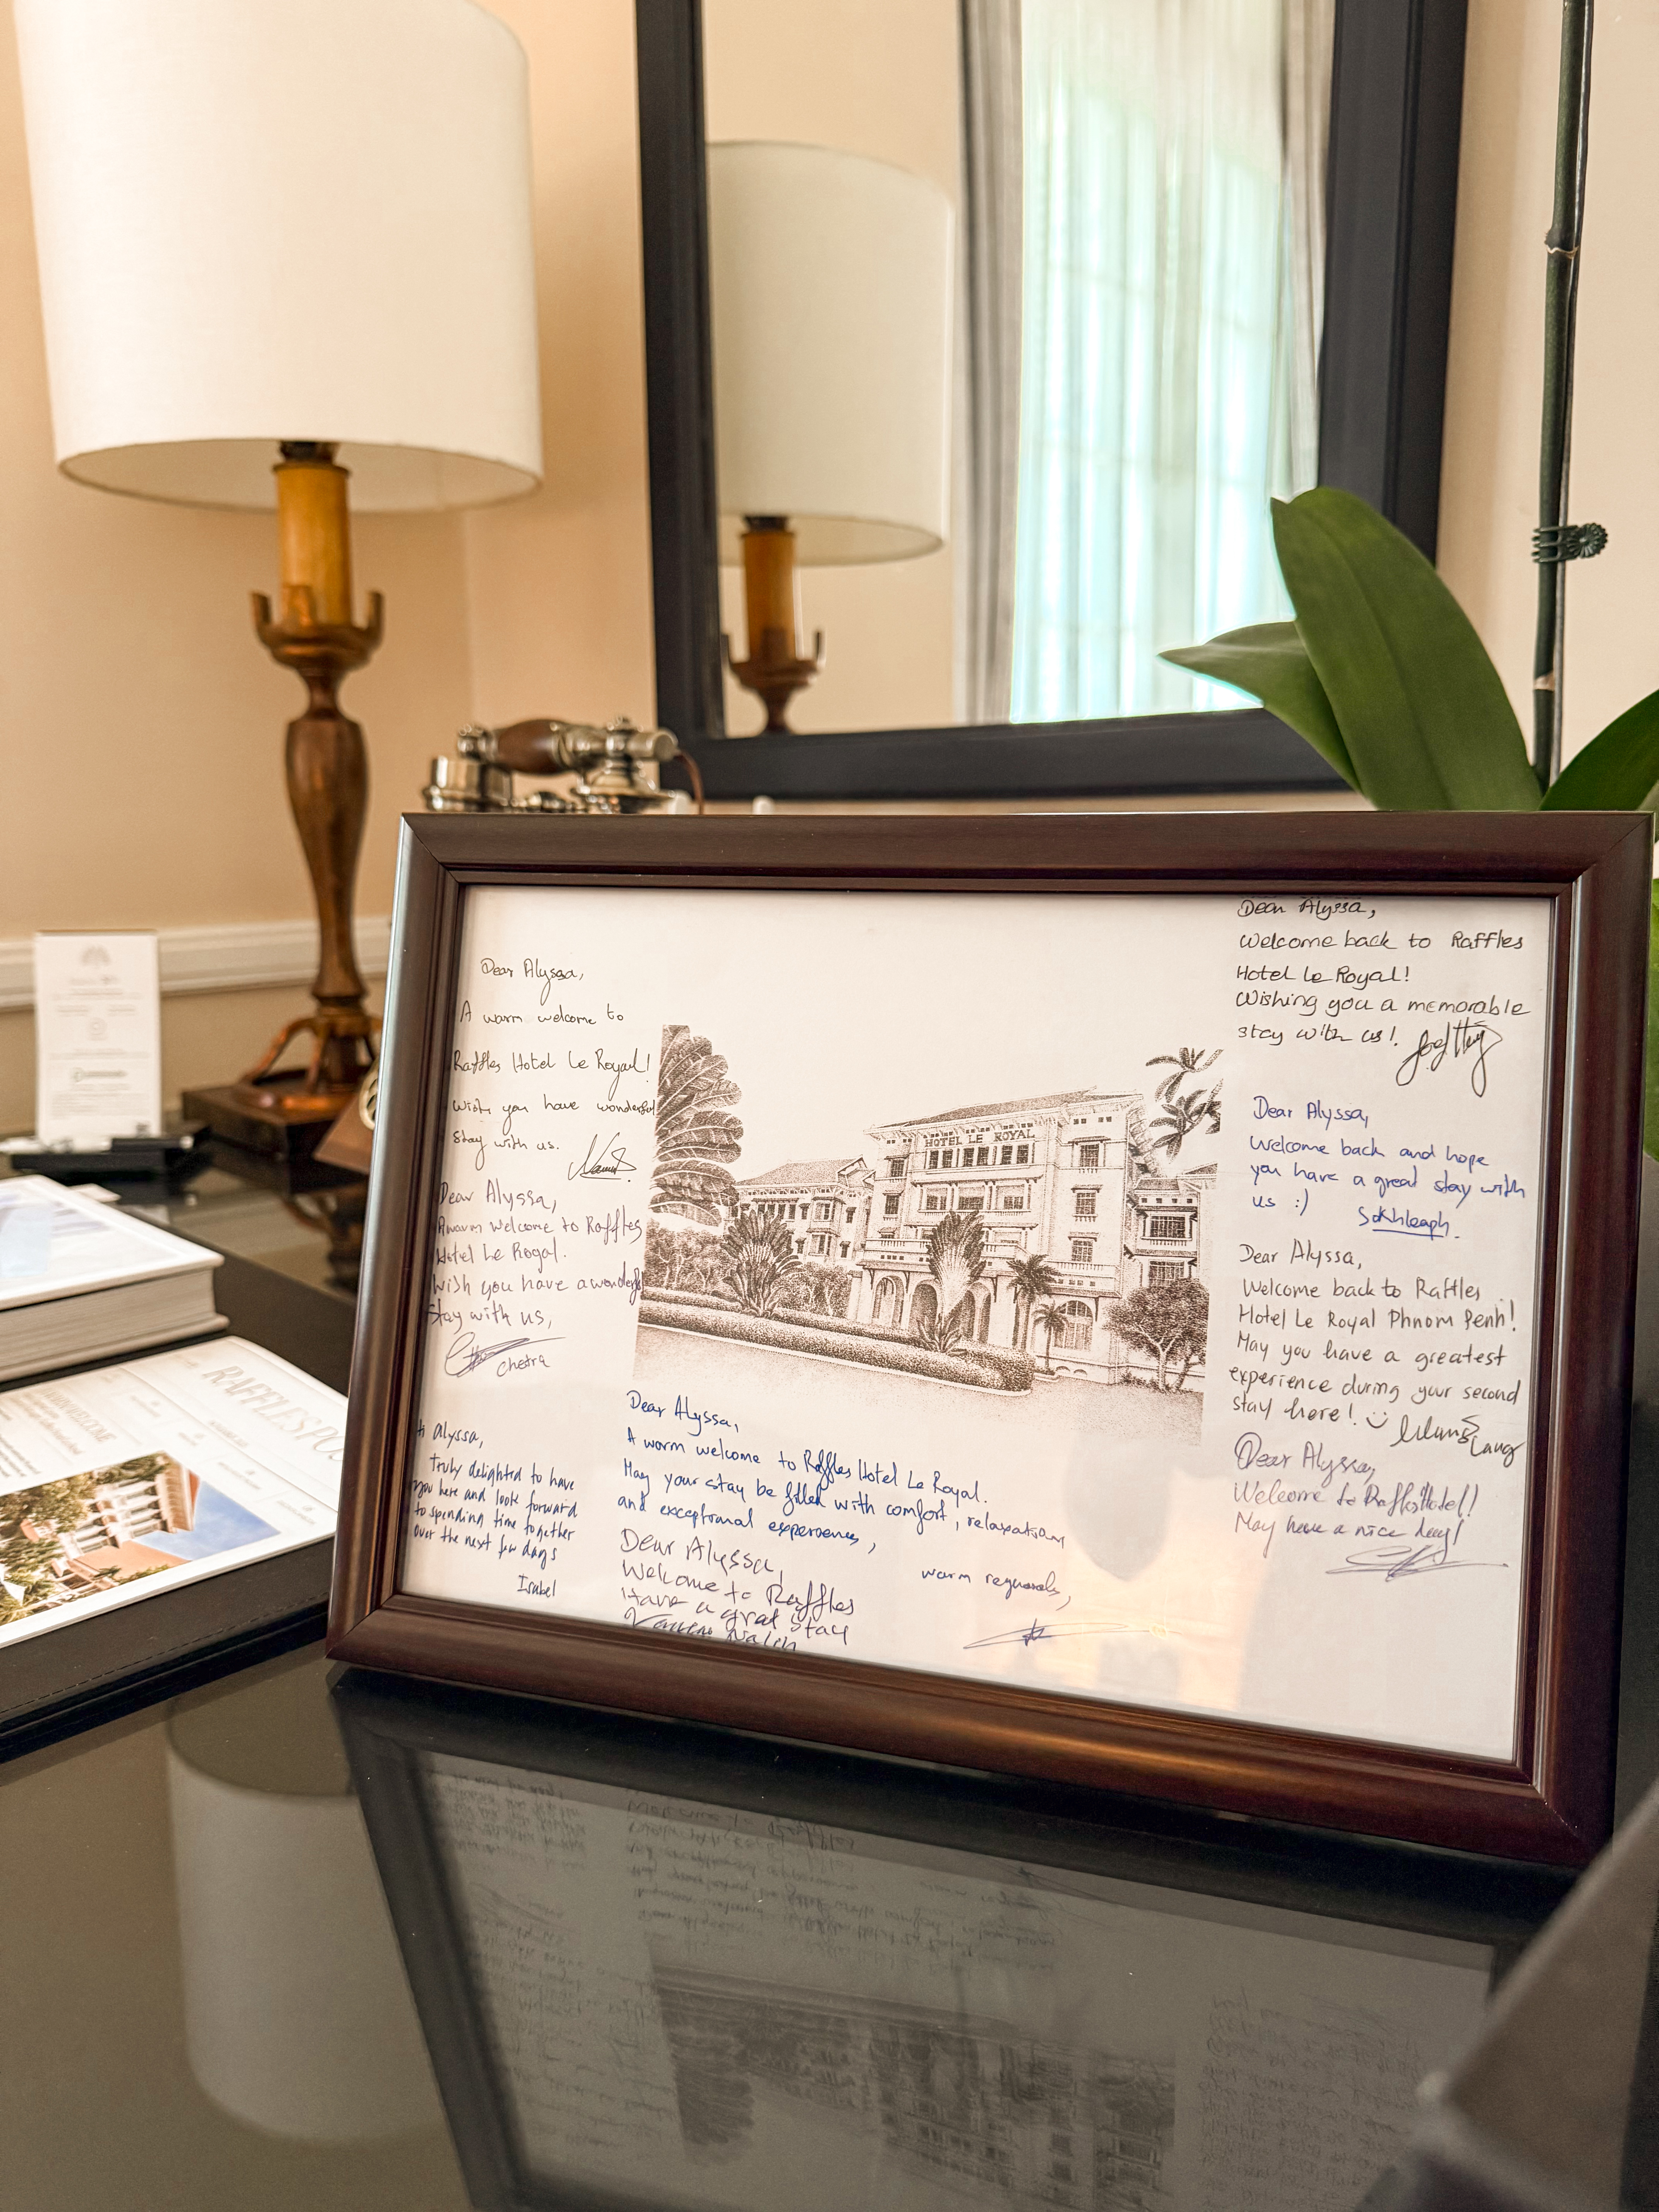 Dear Alyssa,
A warm welcome to
Raffles Hotel Le Royal!
Wish you have wonderful
stay with us.
Dear Alyssa,
A warm welcome to Raffles
Hotel Le Royal.
Wish you have a wonderful
Stay with us,
chetra
Hi Alyssa,
Truly delighted to have
you here and look forward
to spending time together
over the next few days
Isabel
HOTEL LE ROYAL
Dear Alyssa,
A warm welcome to Raffles Hotel Le Royal.
May your stay be filled with comfort, relaxations
and exceptional experiences,
warm regards,
Dear Alyssa,
Welcome to Raffles
Have a grat stay
Dear Alyssa,
Welcome back to Raffles
Hotel Le Royal!
Wishing you a memorable
stay with us!
Dear Alyssa,
Welcome back and hope
you have a great stay with
us :)
Sokhleaph.
Dear Alyssa,
Welcome back to Raffles
Hotel Le Royal Phnom Penh!
May you have a greatest
experience during your second
stay here!
Lang
Dear Alyssa,
Welcome to Raffles Hotel!
May have a nice day!
RAFFLES